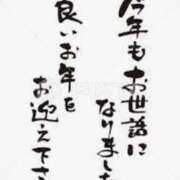 今年もお世話に
なりました
良いお年を
お迎え下さ